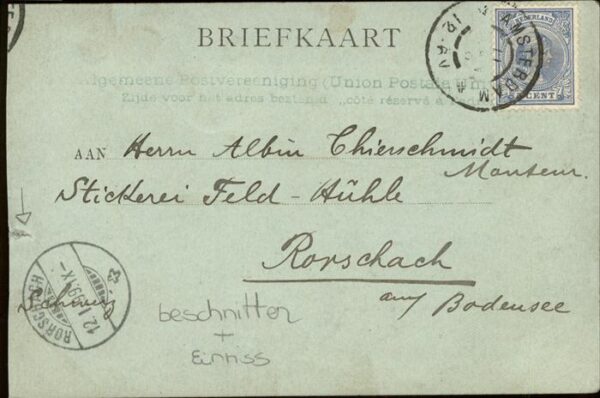 BRIEFKAART
Algemeene Postvereeniging (Union Postale Un
Zijde voor het adres bestemd „côté réservé à
AMSTERDAM
NEDERLAND
CENT
AAN Herrn Albin Thierschmidt
Monteur.
Stickerei Feld-Mühle
Rorschach
Schweiz
am Bodensee
RORSCHACH
12. I. 9. IX-
beschnitten
+
Einriss